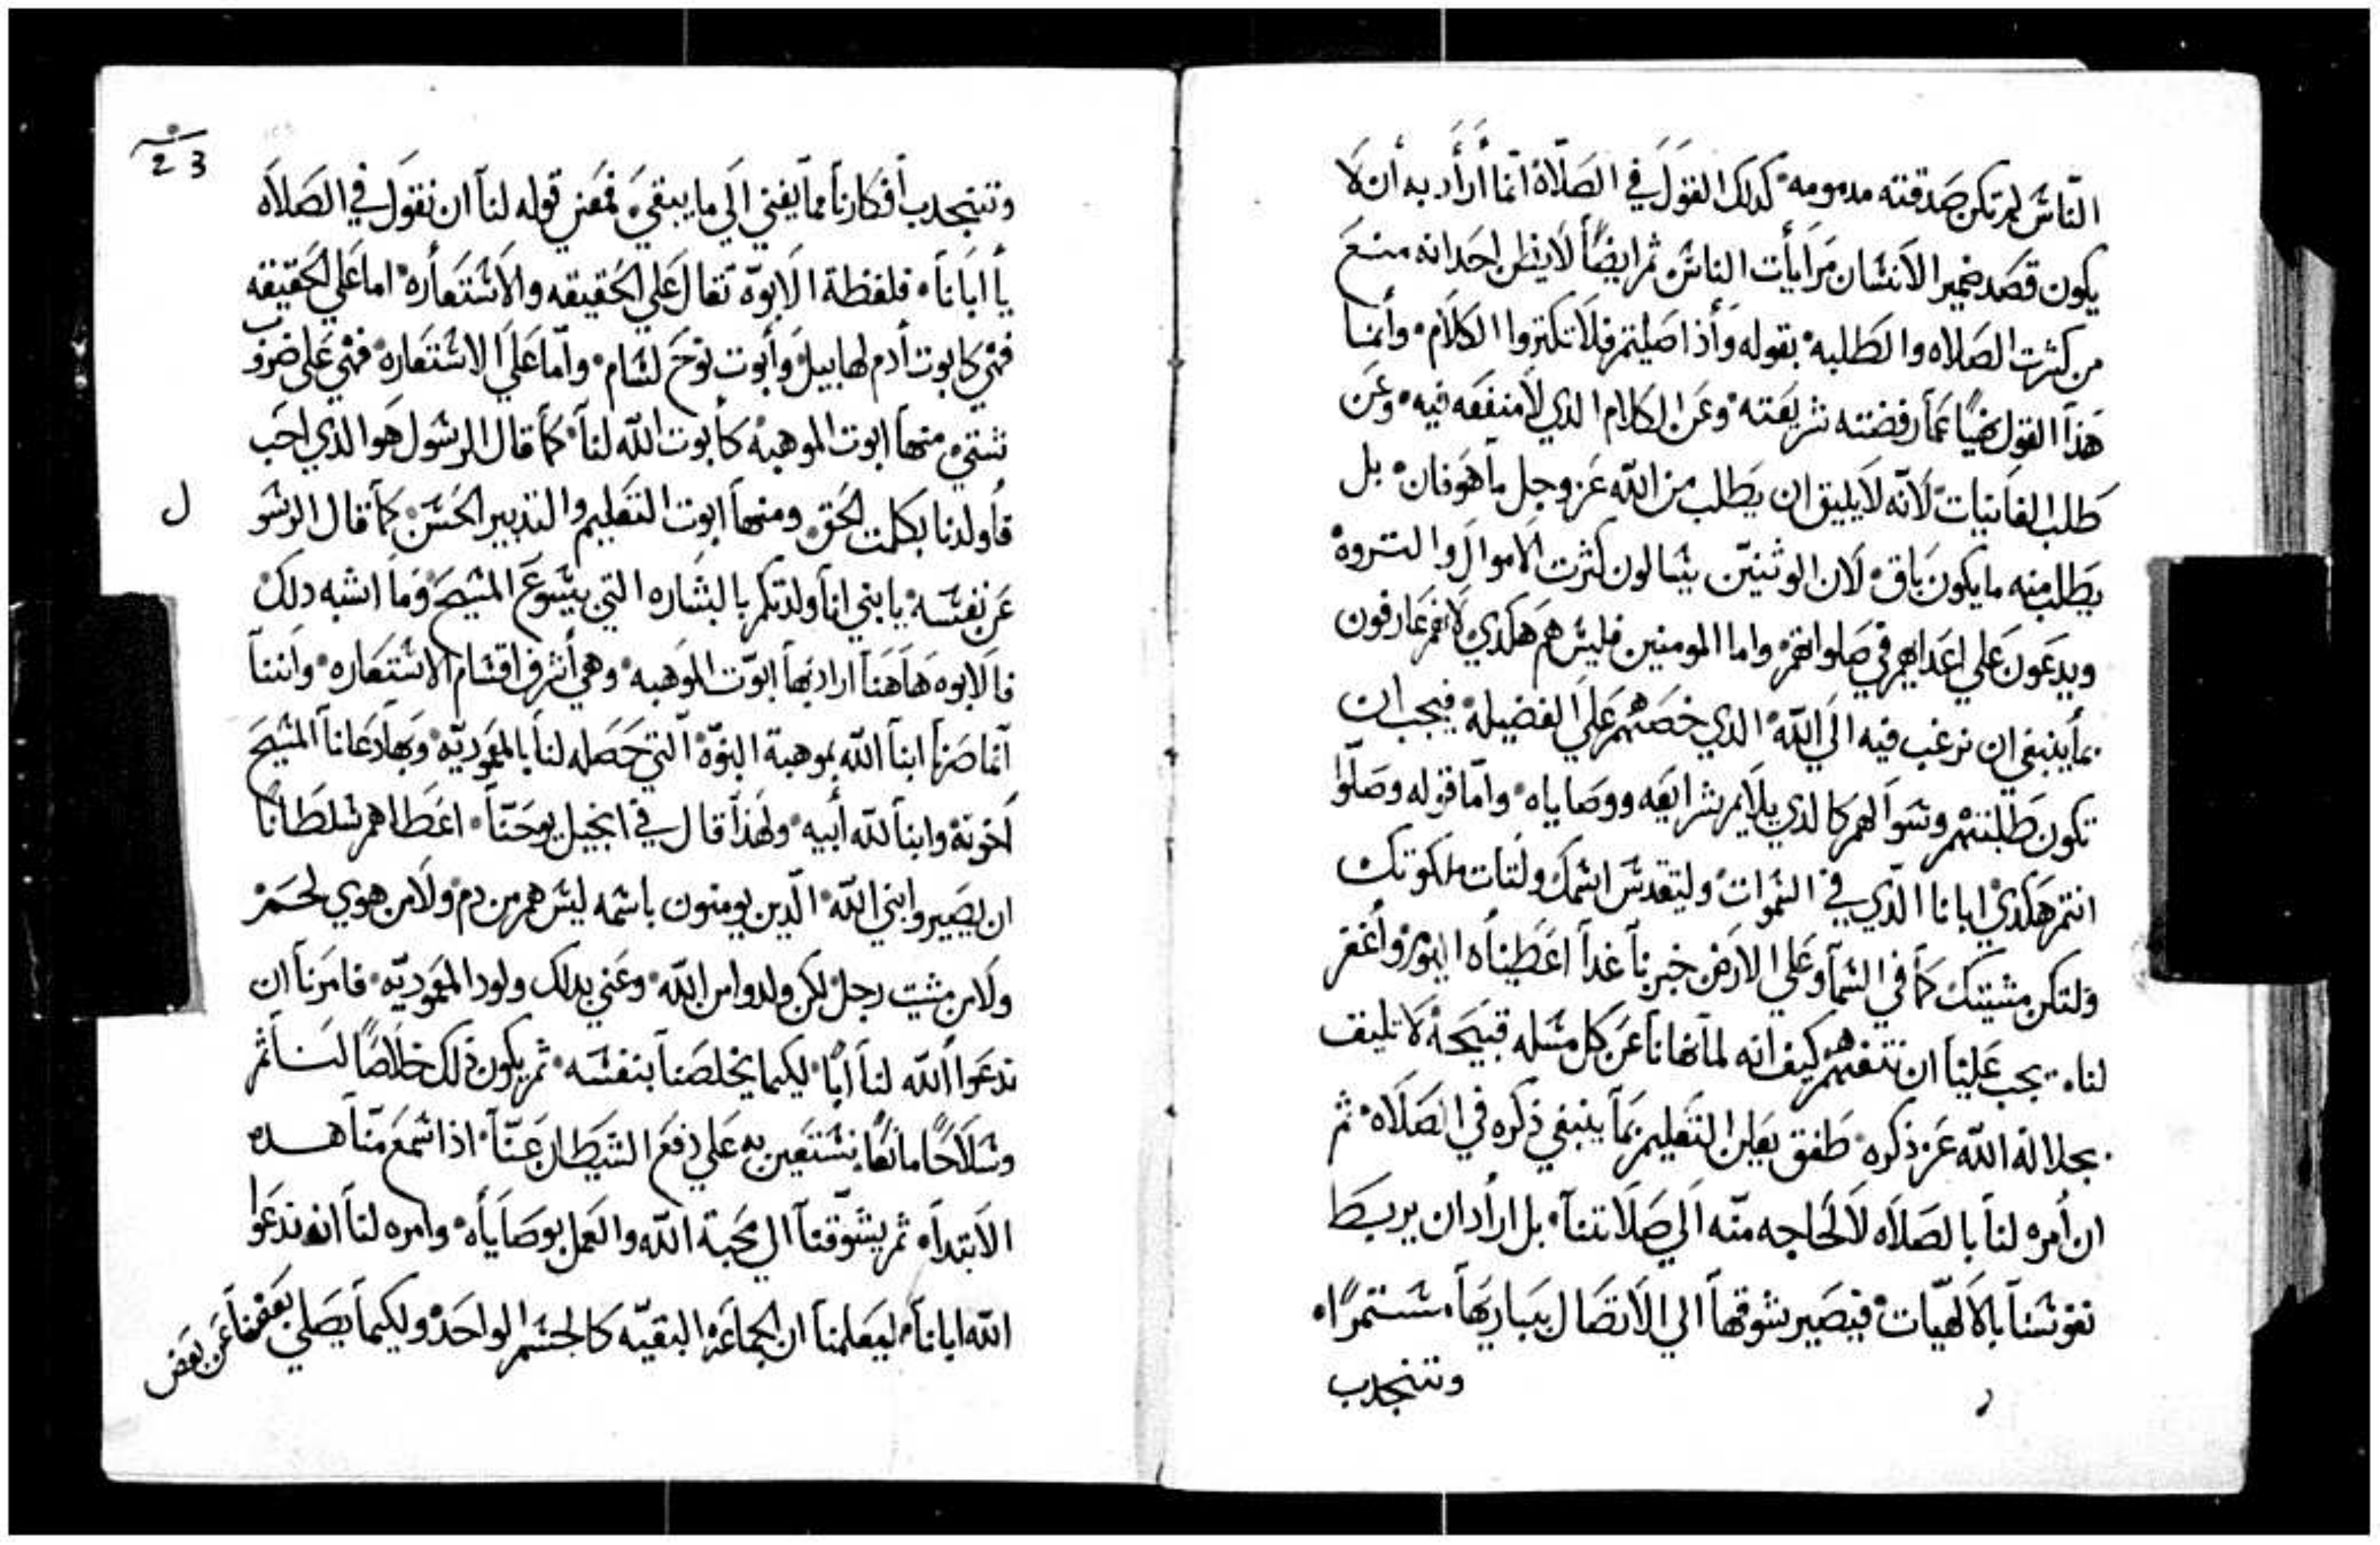 الناس لم تكن صدقته مدمومه كدلك القول في الصلاة انما أراد به أن لا
يكون قصد ضمير الانسان مرايأت الناس ثم ايضًا لا يظن احد انه منع
من كثرت الصلاه والطلبه بقوله وأذا صليتم فلا تكتروا الكلام وأنما
هذا القول نهيًا عما رفضته شريعته وعن الكلام الدي لا منفعه فيه وعن
طلب الفانيات لأنه لا يليق ان يطلب من الله عز وجل ما هو فان بل
يطلب منه ما يكون باق لان الوثنيّن يسالون كثرت الاموال والتروه
ويدعون على اعدايهم في صلواتهم واما المومنين فليس هم هكدي لانهم عارفون
بما ينبغي ان نرغب فيه الى الله الدي خصهم على الفضيله فيجب ان
تكون طلبتهم وسوالهم كالدي يلايم شرايعه ووصاياه واما قوله وصلّوا
انتم هكدي ابانا الّدي في السموات وليتقدس اسمك ولتات ملكوتك
ولتكن مشيتك كما في السمآ وعلى الارض خبزنا غدآ اعطيناه اليوم وأغفر
لنا يجب علينا ان نتفهم كيف انه لما نهانا عن كل مسله قبيحة لا تليق
بجلالة الله عز ذكره طفق يعلن التعليم بما ينبغي ذكره في الصلاه ثم
ان أمره لنا بالصلاه لا لحاجه منّه الى صلاتنا بل اراد ان يربط
نفوسنا بالالهيّات فيصير شوقها الى الاتصال بباريها مستمرًا
وتنجدب
23
وتنجدب أفكارنا مما يفني الى ما يبقي فمعنى قوله لنا ان نقول في الصلاه
يا ابانا فلفظة الابوّة تقال على الحقيقه والاستعاره اما على الحقيقه
فهي كابوت أدم لهابيل وأبوت نوح لسام وأما على الاستعاره فهي على ضروب
شتي منها ابوت الموهبه كأبوت الله لنا كما قال الرسول هو الدي احب
فأولدنا بكلمت الحق ومنها ابوت التعليم والتدبير الحسن كما قال الرسو
ل
عن نفسه يا بني انا ولدتكم بالبشاره التي بيسوع المسيح وما اشبه دلك
فالابوه هاهنا اراد بها ابوّت الموهبه وهي أشرف اقسام الاستعاره واننا
أنما صرنا ابنا الله بموهبة البنوّة التي حصله لنا بالمعموديّه وبها دعانا المسيح
اخوتة وابنا لله أبيه ولهذا قال في انجيل يوحنّا اعطاهم سلطانًا
ان يصيروا بني الله الّدين يومنون باسمه ليس هم من دم ولا من هوي لحم
ولا من مشيت رجل لكن ولدوا من الله وعني بدلك ولود المعموديّه فامرنا ان
ندعوا الله لنا ابًا ليكما يخلصنا بنفسه ثم يكون ذلك خلاصًا لنا ثم
وسلاحًا مانعًا نستعين به على دفع الشيطان عنّا اذا سمع منّا هده
الابتدا ثم يشوّقنا الى محبة الله والعمل بوصاياه وامره لنا انه ندعوا
الله ابانا ليعلمنا ان الجماعة البقيّه كالجسم الواحد وليكما يصلي بعضنا عن بعض